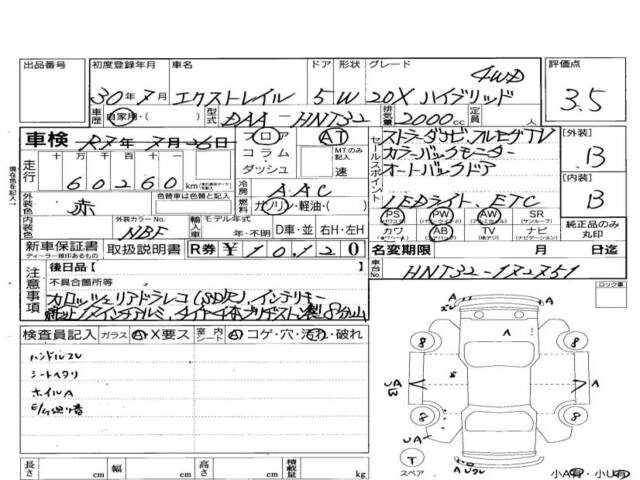 出品番号 初度登録年月 車名 ドア 形状 グレード 評価点
30年7月 エクストレイル 5 W 20X ハイブリッド 4WD 3.5
車歴 自家用・( ) 型式 DAA-HNT32 排気量 2000cc 定員 人
車検 R7年7月26日 フロア コラム・ダッシュ AT MTのみ記入 速
セールスポイント
ストラーダナビ、フルセグTV
カラーバックモニター
オートバックドア
LEDライト、ETC
外装 B
内装 B
走行 十 万 千 百 十 一
60260 km
冷房 AAC
燃料 ガソリン・軽油・( )
外装色 赤 色替車は色替と記入
内装色 外装カラーNo. NBF
輸入車 モデル年式 年・不明 D車・並 右H・左H
PS PW AW SR
カワ AB TV ナビ
純正品のみ丸印
新車保証書 ディーラー様印あるもの 取扱説明書 R券 ¥10,120
名変期限 月 日迄
車台No. HNT32-172751
注意事項 後日品【 】
不具合箇所等
カロッツェリアドラレコ(SD欠)、インテリキー
8分山
ロック車
検査員記入 ガラス A・X要ス 室内シート A・コゲ・穴・汚れ・破れ
ハンドルスレ
シートヘタリ
ホイルA
長さ cm 幅 cm 高さ cm 積載量 kg
A
8 8
UA A A
8 8
UA
T
スペア
小A有・小U有